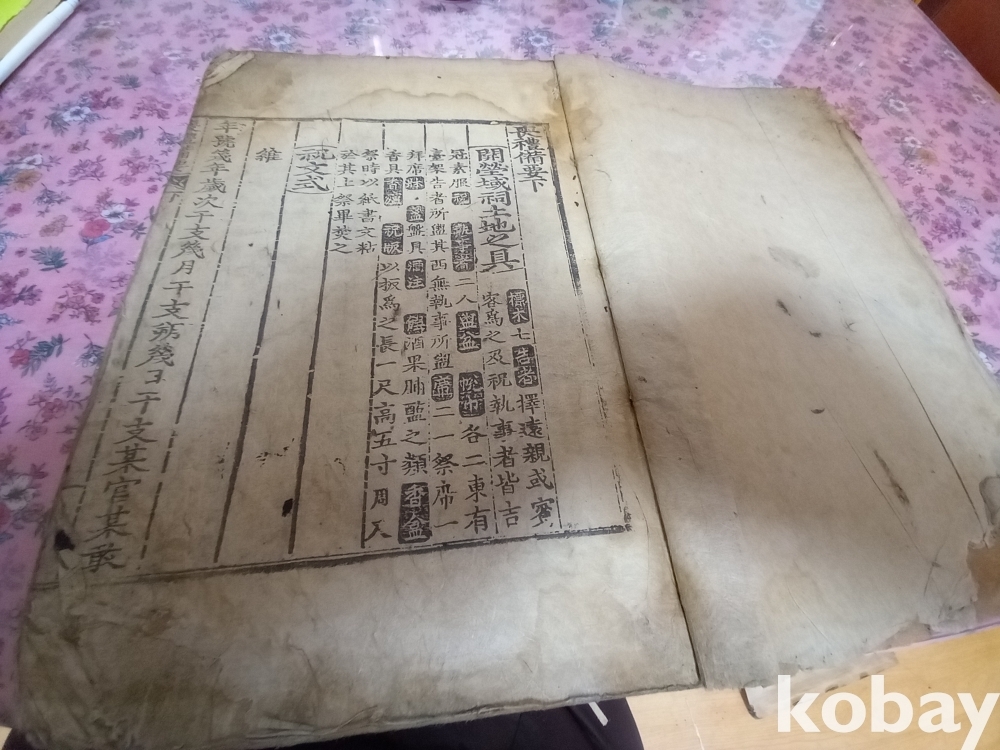 喪禮備要下
開塋域祠土地之具
標木七告者擇遠親或賓
客爲之及祝執事者皆吉
冠素服祝執事者二人盥盆帨巾各二東有
臺架告者所盥其西無執事所盥席二一祭席一
拜席盞盤具酒注饌酒果脯醢之類香盆
香具香爐祝版以板爲之長一尺高五寸周尺
祭時以紙書文粘
於其上祭畢焚之
祝文式
維
年號幾年歲次干支幾月干支朔幾日干支某官某敢
kobay